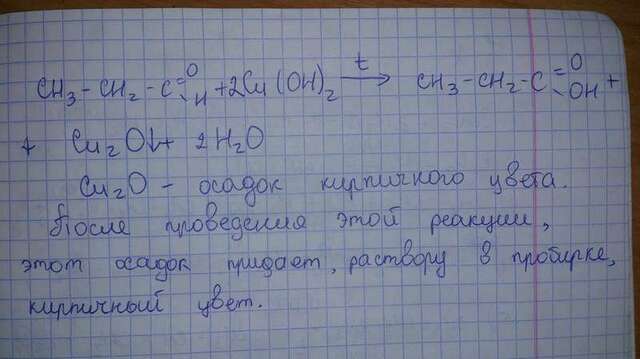 CH₃-CH₂-C=O-H + 2Cu(OH)₂ t→ CH₃-CH₂-C=O-OH +
+ Cu₂O↓ + 2H₂O
Cu₂O - осадок кирпичного цвета.
После проведения этой реакции,
этот осадок придает, раствору в пробирке,
кирпичный цвет.